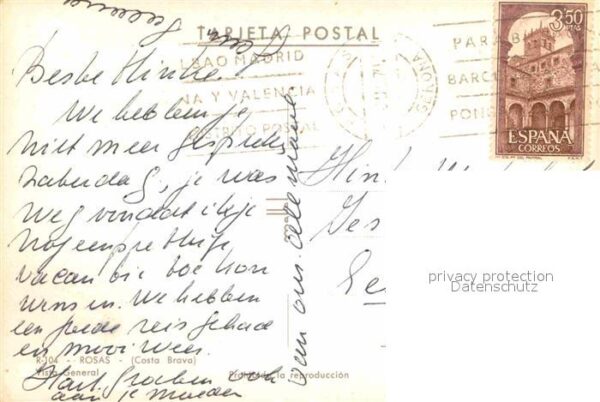 TARJETA POSTAL
BAO MADRID
NA Y VALENCIA
DISTRITO POSTAL
PARA B
BARC
PON
3,50 PTAS
ESPAÑA
CORREOS
Beste Hinke
We hebben je
niet meer gesproken
Zaterdag, je was
weg vondat ik je
nog een prettige
vacantie toe kon
wensen. We hebben
een goede reis gehad
en mooi weer.
Hart. Groeten ook
aan je moeder
van ons allemaal
R-104 - ROSAS - (Costa Brava)
Vista General
Prohibida la reproducción
privacy protection
Datenschutz